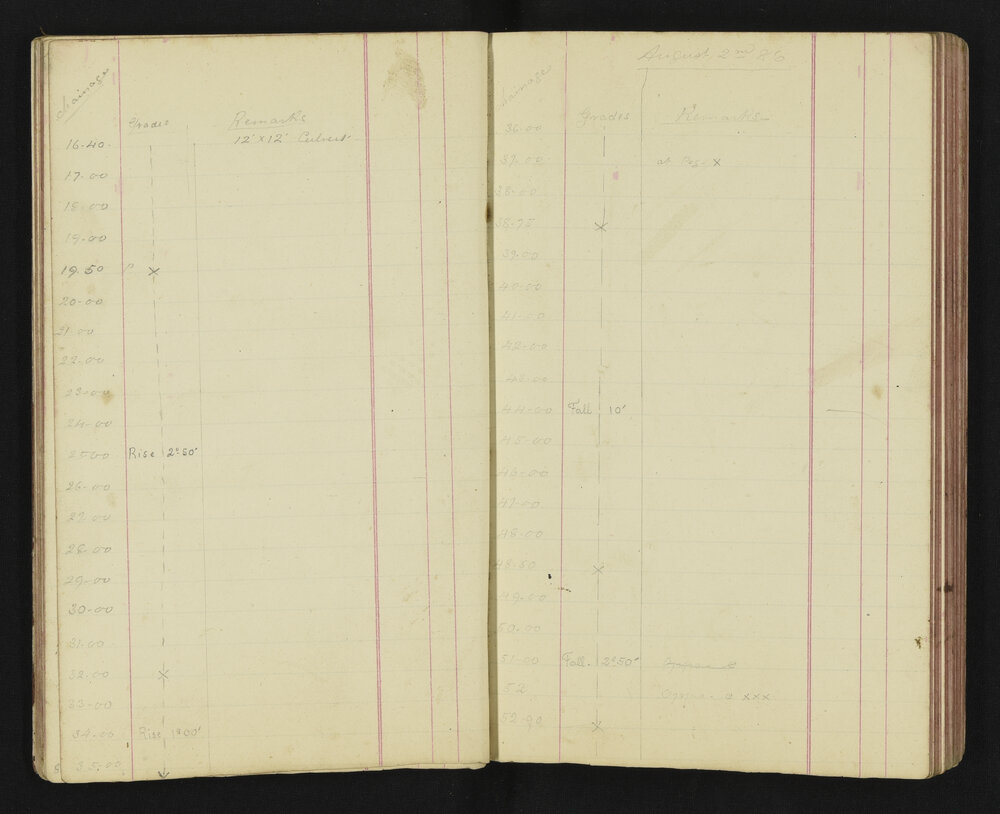 Chainage
Grades Remarks
16-40 12'x12' Culvert
17.00
18.00
19.00
19.50 x
20-00
21-00
22.00
23-00
24-00
25.00 Rise 2°50'
26-00
27.00
28.00
29-00
30-00
31.00
32.00 x
33-00
34.00 Rise 1°00'
35.00
August 2nd 86
Chainage
Grades Remarks
36-00
37.00 at Peg x
38-00
38-75 x
39.00
40-00
41-00
42-00
43-00
44-00 Fall 10'
45-00
46-00
47-00
48-00
48-50 x
49-00
50-00
51-00 Fall. 2°50'
52 xxx
52-90 x